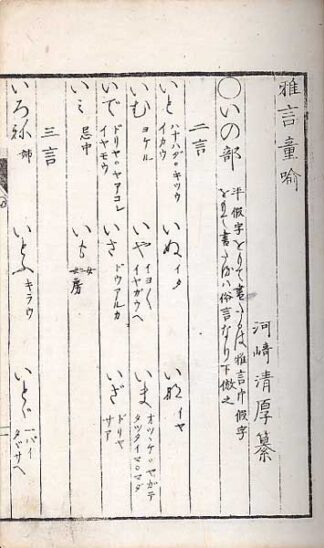 雅言童喩
河﨑清厚纂
〇いの部 平假字をもて書るは雅言片假字
をもて書るハ俗言なり下倣之
二言
いと ハナハダ。キツウ イカウ いぬ イタ いな イヤ
いむ ヨケル いや イヨ〱 イヤガウヘ いま オツヽケ。ヤガテ タツタイマ。マダ
いで ドリヤ。ヤアコレ イヤモウ いさ ドウアルカ いざ ドリヤ サア
いミ 忌中 いも 女房
三言
いろね 姉 いとふ キラウ いとゞ 一バイ タヾサヘ